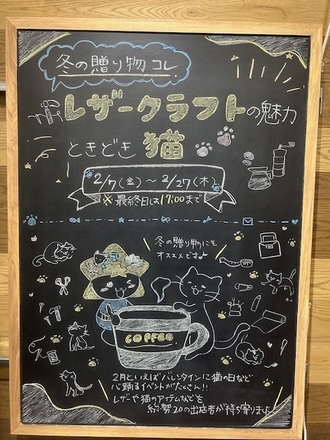 冬の贈り物コレ
レザークラフトの魅力
ときどき猫
2/7(金)~2/27(木)
※最終日は17:00まで
冬の贈り物にも
オススメです♪
COFFEE
2月といえばバレンタインに猫の日など
心踊るイベントがたくさん!!
レザーや猫のアイテムなどを
総勢20の出店者が持ち寄りました